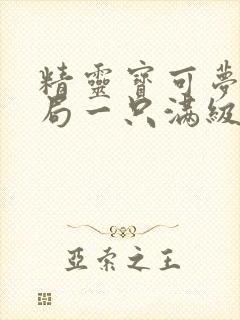 精靈寶可夢
局一只滿級
亞索之王